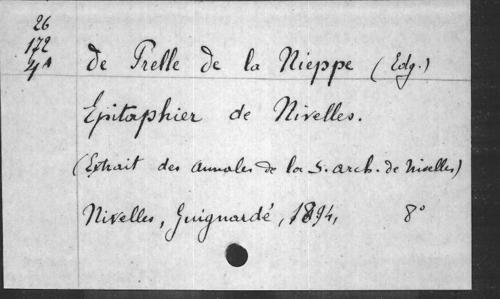 26
172
4A
de Prelle de la Nieppe (Edg.)
Epitaphier de Nivelles.
(Extrait des annales de la S. arch. de Nivelles)
Nivelles, Guignardé, 1894, 8°